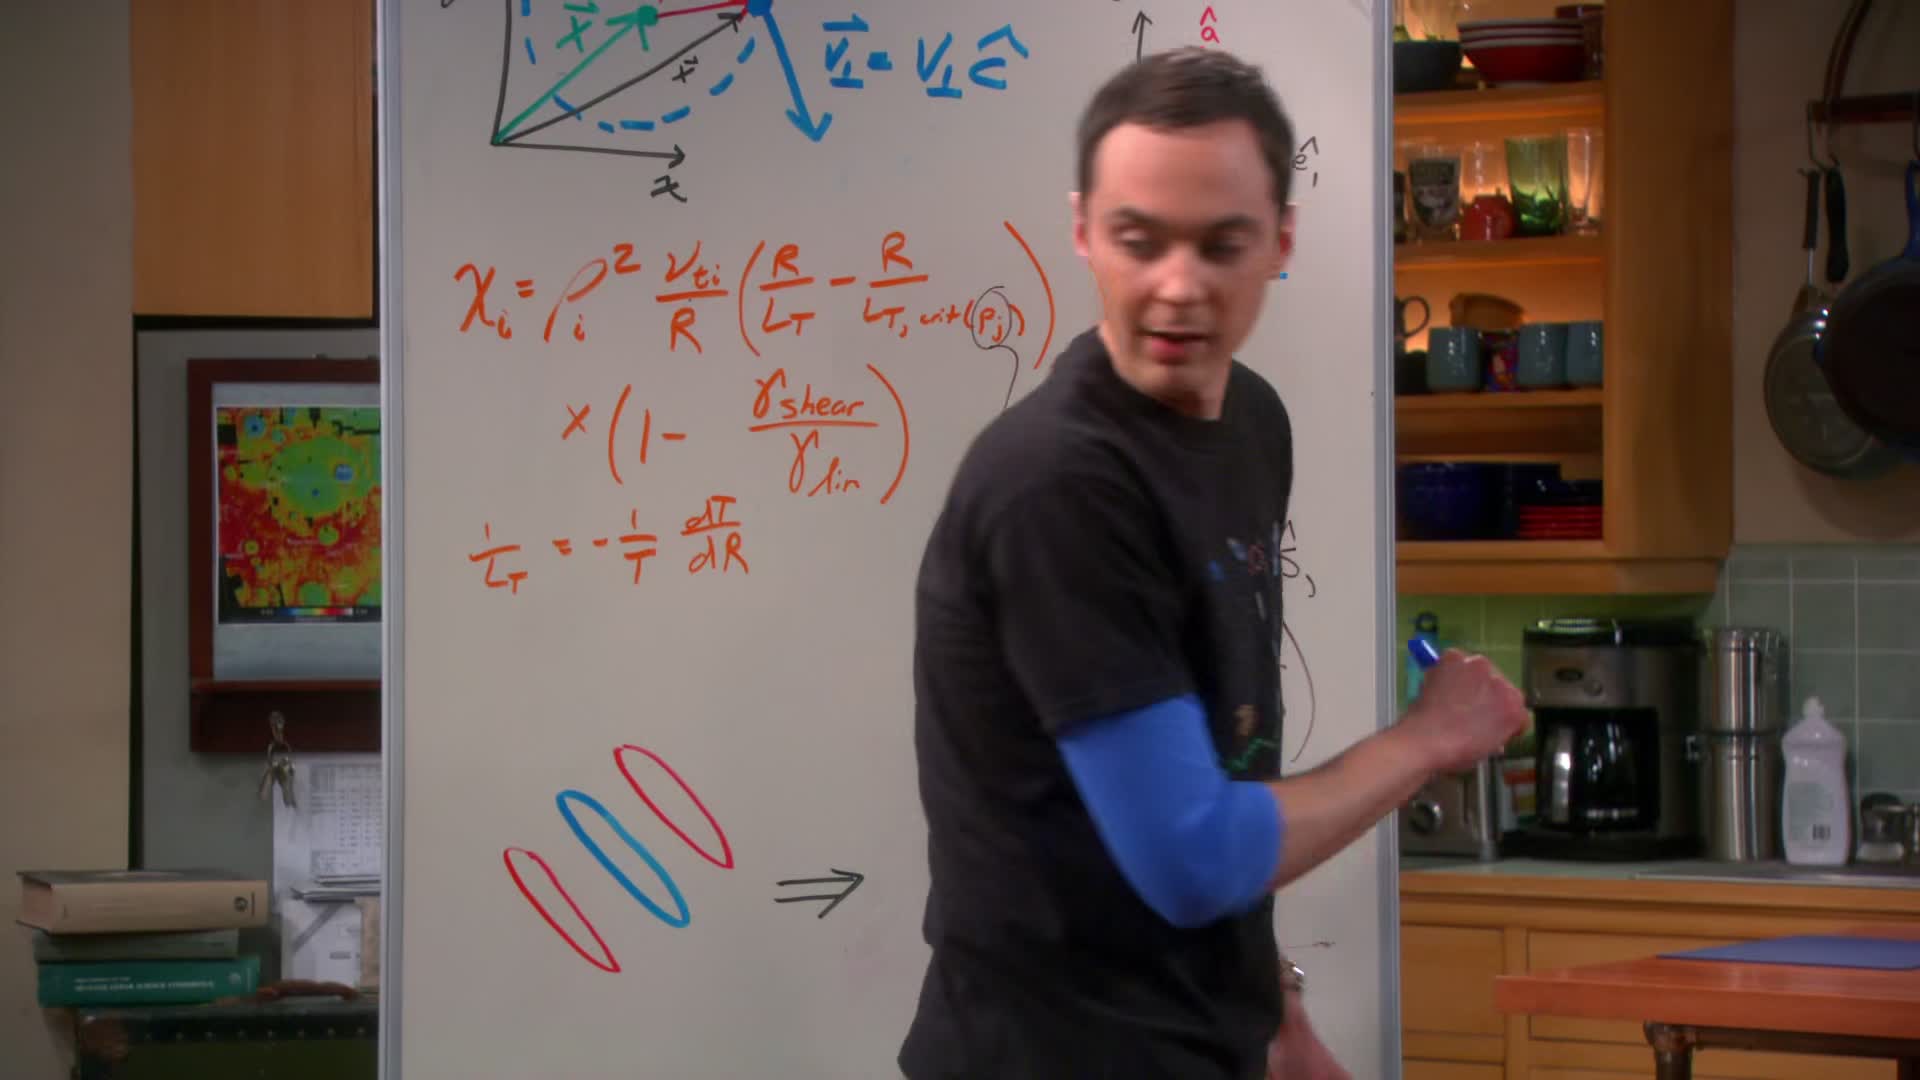 x⃗
x⃗
V⃗⊥ = V⊥ ĉ
â
x
ê₁
χᵢ = ρᵢ² v_ti/R (R/L_T - R/L_T,crit(Pj))
× (1 - γshear/γlin)
1/L_T = - 1/T dT/dR
⇒